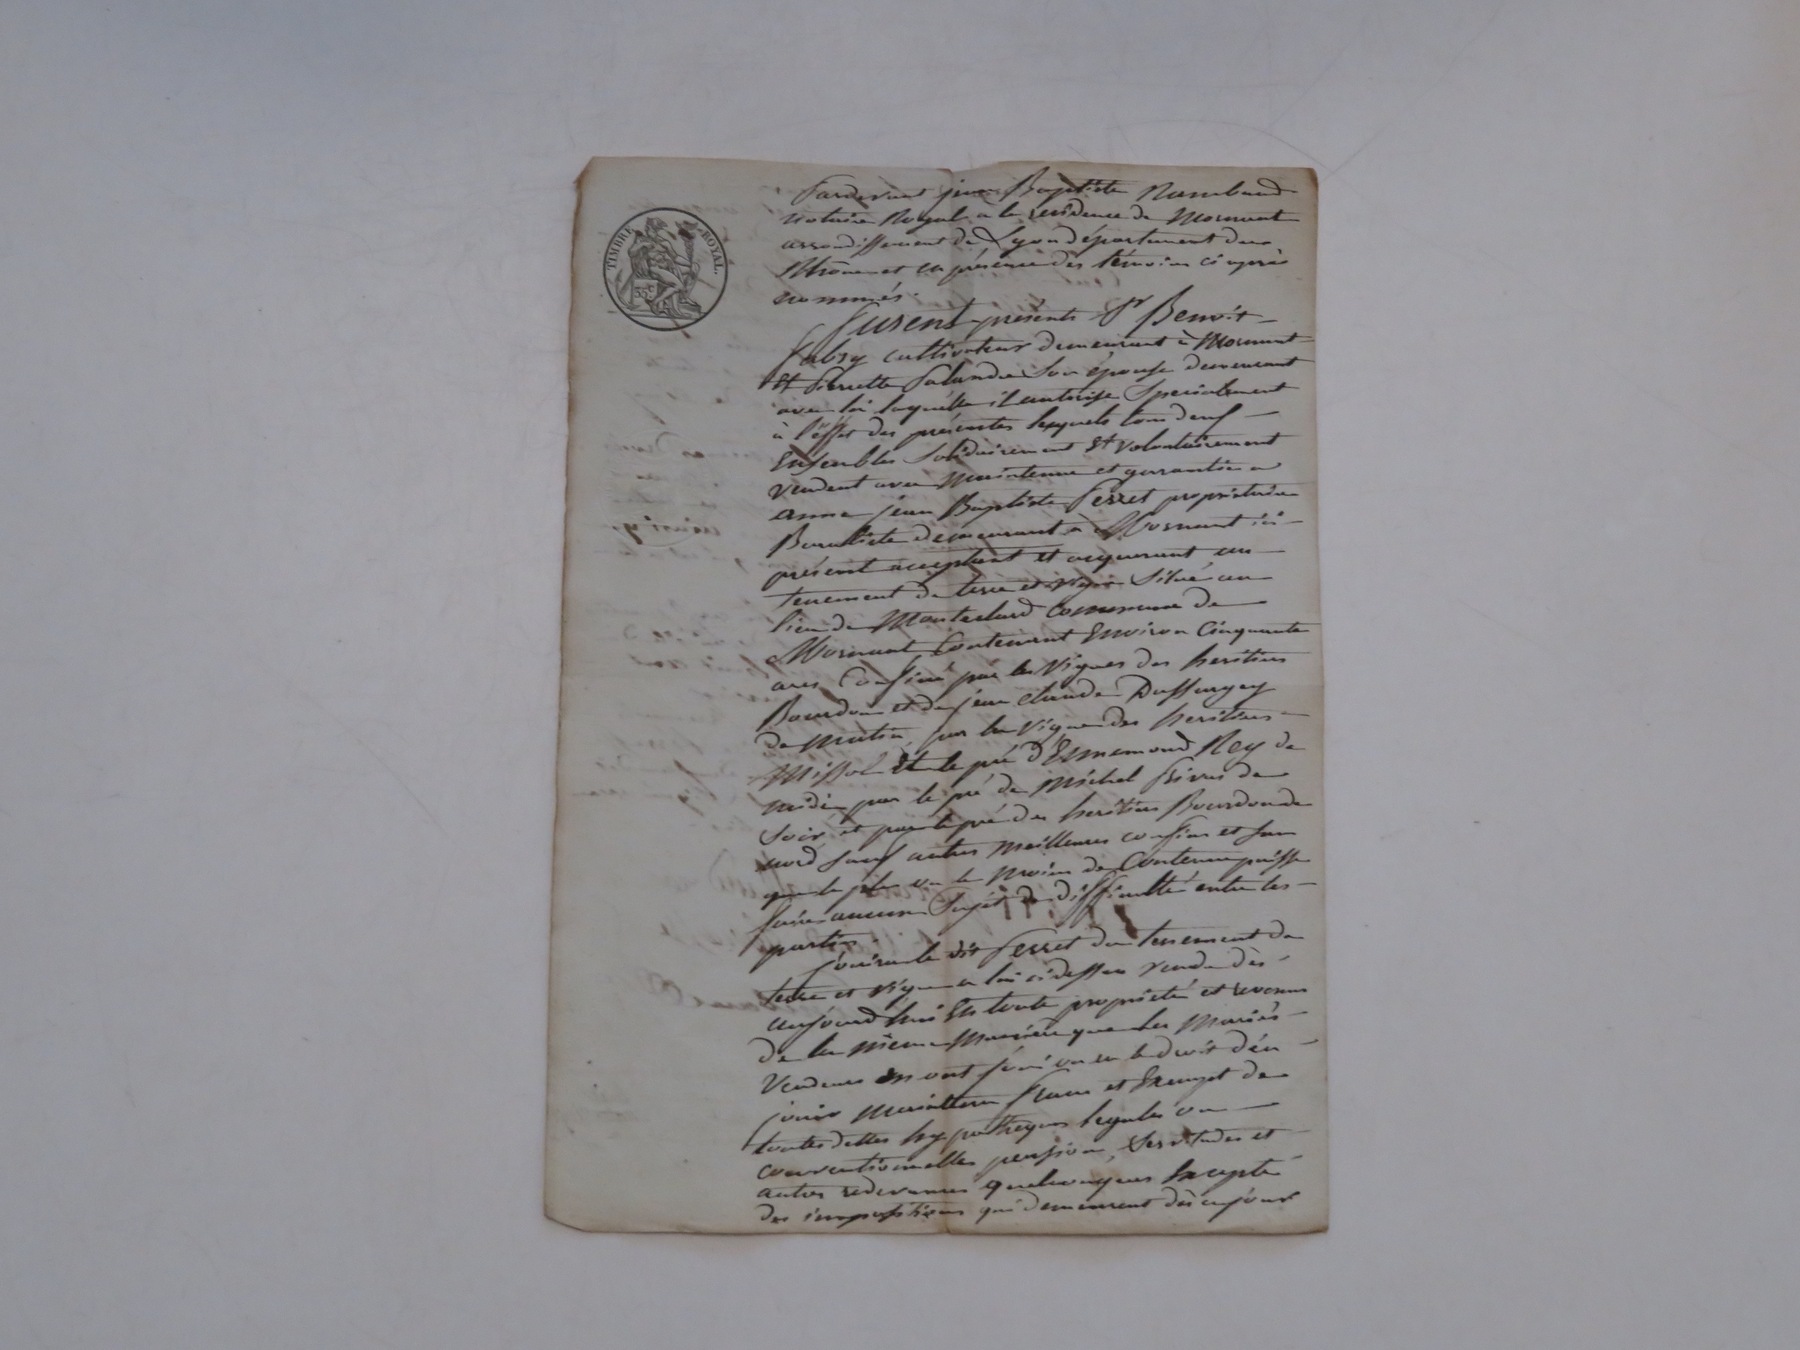 TIMBRE ROYAL.
35c
Pardevant jean Baptiste Rambaud
notaire Royal a la residence de Mornant
arrondissement de Lyon département du
Rhône et en présence des témoins ci après
nommés.
Furent présents Sr Benoit
cultivateur demeurant à Mornant
Et Pierrette son épouse demeurant
avec lui laquelle il autorise Specialement
à l'effet des présentes lesquels tous deux
Ensembles Solidairement Et volontairement
vendent avec maintenue et garantie a
jean Baptiste Ferret propriétaire
demeurant à Mornant ici
présent acceptant et acquerant un
tenement de terre et vigne Situé au
lieu de commune de
Mornant Contenant Environ Cinquante
ares Confiné par les vignes des heritiers
Bourdon et de jean claude Duffurgey
de matin, par la vigne des heritiers
Missol Et le pré d'Ennemond Rey de
midi, par le pré de Michel de
soir et par le pré des heritiers Bourdon de
nord sauf autres meilleures confins et san
que le plus ou le moins de Contenue puisse
faire aucun Sujet de difficulté entre les
parties.
Jouira le dit Ferret du tenement de
terre et vigne a lui ci dessus vendu dès
aujourd'hui En toute propriété et revenus
de la même manière que les Mariés
vendeurs en ont joui ou eu le droit d'en
jouir maintenu franc et Exempt de
toutes dettes hypothèques legales ou
conventionnelles pension, Servitudes et
autres redevances quelconques Excepté
des impositions qui demeurent dès aujour